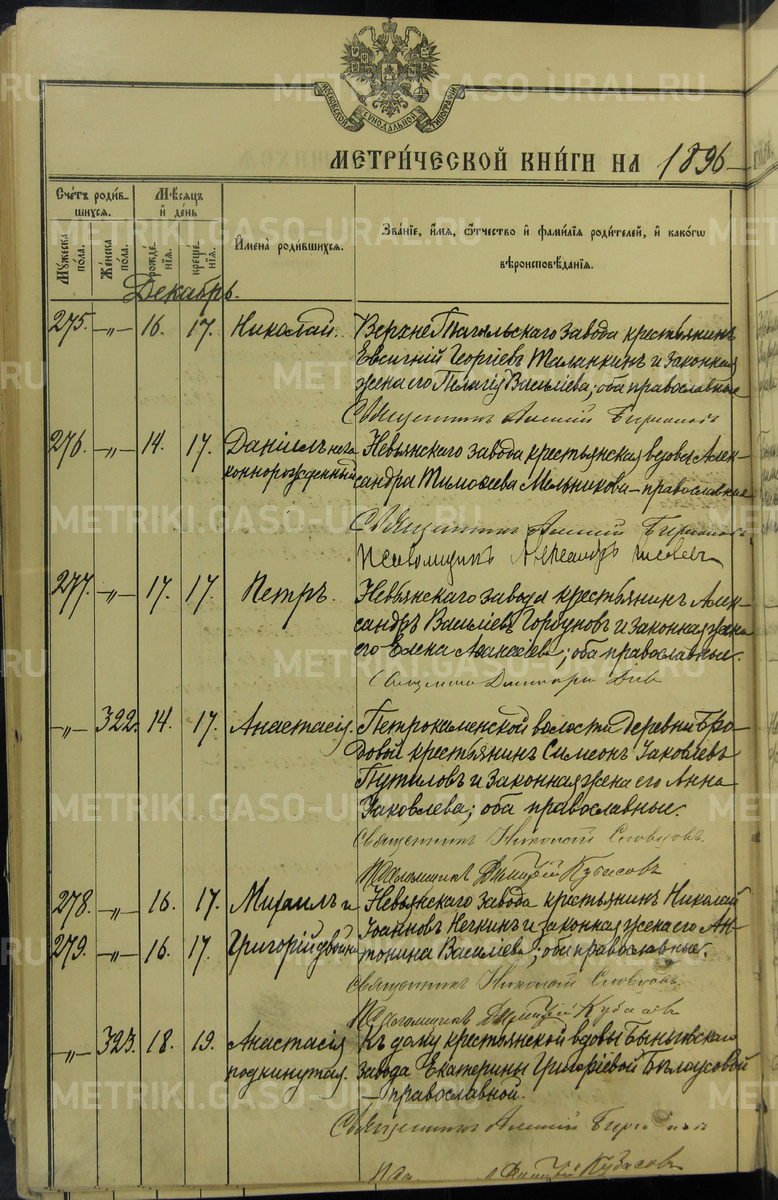 МОСКОВСКОЙ СѴНОДАЛЬНОЙ ТИПОГРАФІИ
МЕТРИ́ЧЕСКОЙ КНИ́ГИ НА 1896
Сче́тъ роди́в-
шихся.
Мѣ́сяцъ
и҆ де́нь
Мꙋ́жеска по́ла.
Же́нска по́ла.
рожде́-нїя.
креще́-нїя.
И҆мена̀ роди́вшихся.
Зва́нїе, и҆́мя, ѻ҆́тчество и҆ фами́лїя роди́телей, и҆ како́гѡ
вѣроисповѣ́данїя.
Декабрь.
275. —"— 16. 17. Николай. ВерхнеТагильскаго завода крестьянинъ
Евсигній Георгіевъ Таланкинъ и законная
жена его Пелагія Василіева; оба православные
Священникъ
276. —"— 14. 17. Даніилъ неза- Невьянскаго завода крестьянская вдова Алек-
коннорожденный сандра Тимоѳеева Мельникова – православная
Священникъ
Псаломщикъ Александръ
277. —"— 17. 17. Петръ. Невьянскаго завода крестьянинъ Алек-
сандръ Василіевъ Горбуновъ и законная жена
его Елена Аѳанасіева; оба православные.
Священникъ
—"— 322. 14. 17. Анастасія. Петрокаменской волости деревни Бро-
довой крестьянинъ Симеонъ Іаковлевъ
Путиловъ и законная жена его Анна
Іаковлева; оба православные.
Священникъ Николай Словцовъ.
Псаломщикъ Димитрій Кубасовъ
278. —"— 16. 17. Михаилъ и Невьянскаго завода крестьянинъ Николай
Іоанновъ Нечкинъ и законная жена его Ан-
279. —"— 16. 17. Григорій двойни тонина Василіева; оба православные.
Священникъ Николай Словцовъ
Псаломщикъ Димитрій Кубасовъ
—"— 323. 18. 19. Анастасія Къ дому крестьянской вдовы Быньговскаго
подкинутая. завода Екатерины Григоріевой Бѣлоусовой
– православной.
Священникъ
Димитрій Кубасовъ
METRIKI.GASO-URAL.RU